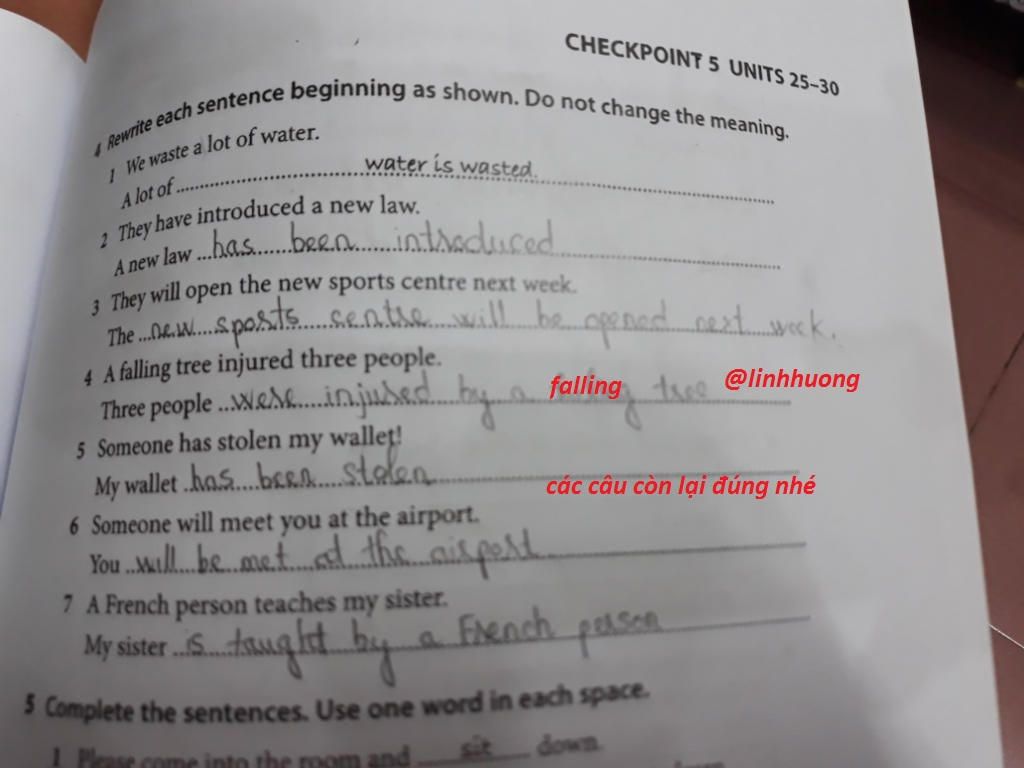 CHECKPOINT 5 UNITS 25–30
4 Rewrite each sentence beginning as shown. Do not change the meaning.
1 We waste a lot of water.
A lot of water is wasted.
2 They have introduced a new law.
A new law has been introduced
3 They will open the new sports centre next week.
The new sports sentre will be opened next week.
4 A falling tree injured three people.
Three people were injured by a falling tree @linhhuong
5 Someone has stolen my wallet!
My wallet has been stolen
các câu còn lại đúng nhé
6 Someone will meet you at the airport.
You will be met at the airport
7 A French person teaches my sister.
My sister is taught by a French person
5 Complete the sentences. Use one word in each space.
1 Please come into the room and sit down.
down